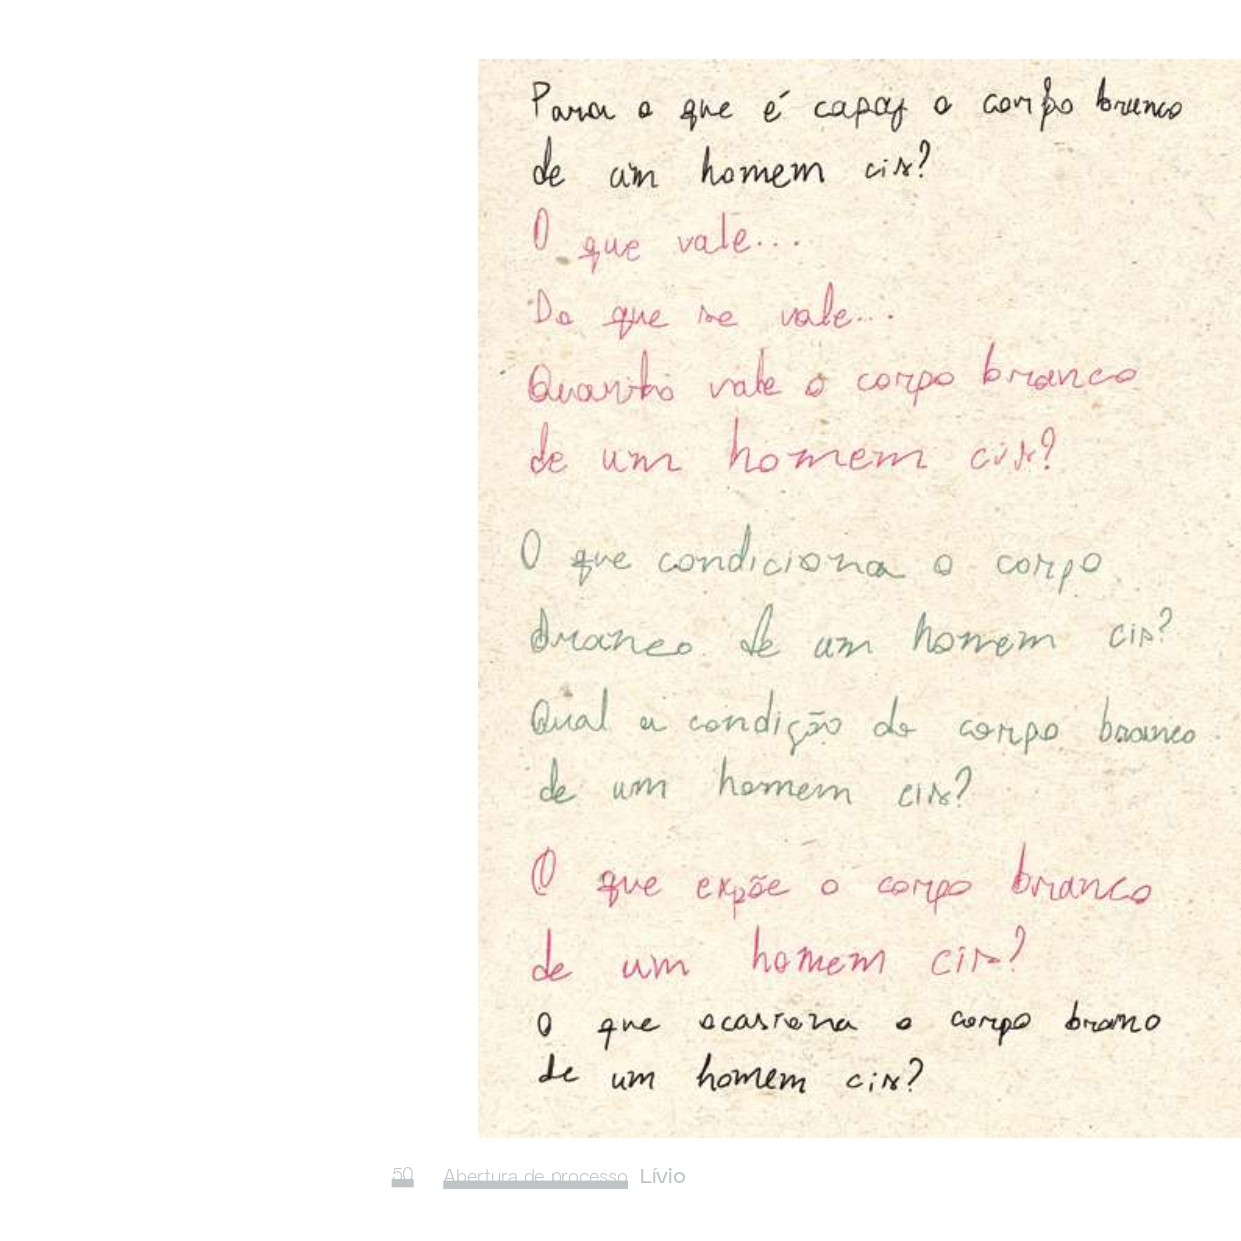 Para o que é capaz o corpo branco
de um homem cis?
O que vale...
Do que se vale...
Quanto vale o corpo branco
de um homem cis?
O que condiciona o corpo
branco de um homem cis?
Qual a condição do corpo branco
de um homem cis?
O que expõe o corpo branco
de um homem cis?
O que ocasiona o corpo brano
de um homem cis?
50 Abertura de processo Lívio